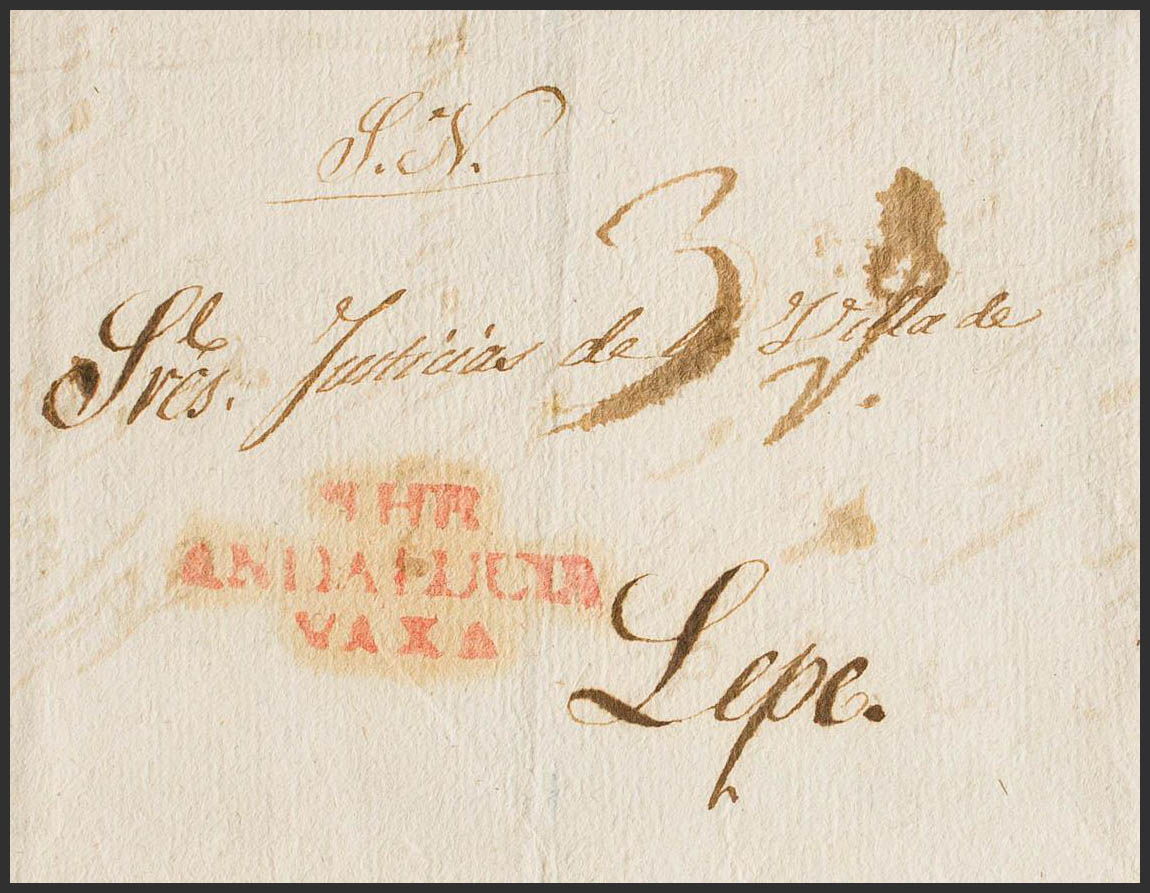 S.N.
3
Sres. Justicias de Villa de
V.
HR
ANDALUCIA
VAXA
Lepe.